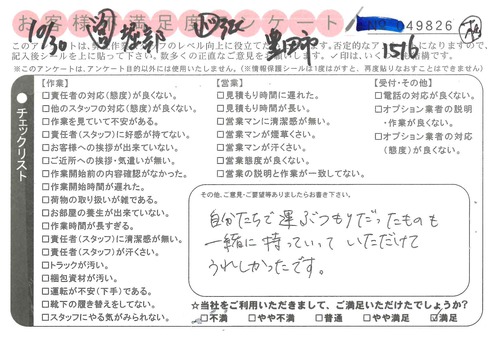 お客様満足度アンケート
NO 049826
10/30
堀部
豊田市
1516
このアンケートは、
のレベル向上に役立て
記入後シールを上に貼って下さい。数多くの正直なご意見をお
※このアンケートは、アンケート目的以外には使用いたしません。(※情報保護シールは1度はがすと、再度貼りなおすことはできません)
チェックリスト
【作業】
□責任者の対応(態度)が良くない。
□他のスタッフの対応(態度)が良くない。
□作業を見ていて不安がある。
□責任者(スタッフ)に好感が持てない。
□お客様への挨拶が出来ていない。
□ご近所への挨拶・気遣いが無い。
□作業開始前の内容確認がなかった。
□作業開始時間が遅れた。
□荷物の取り扱いが雑である。
□お部屋の養生が出来ていない。
□作業時間が長すぎる。
□責任者(スタッフ)に清潔感が無い。
□責任者(スタッフ)が汗くさい。
□トラックが汚い。
□梱包資材が汚い。
□運転が不安(下手)である。
□靴下の履き替えをしてない。
□スタッフにやる気がみられない。
【営業】
□見積もり時間に遅れた。
□見積もり時間が長い。
□営業マンに清潔感が無い。
□営業マンが煙草くさい。
□営業マンが汗くさい。
□営業態度が良くない。
□営業の説明と作業が一致してない。
【受付・その他】
□電話の対応が良くない。
□オプション業者の説明
・作業が良くない。
□オプション業者の対応
(態度)が良くない。
その他、ご意見・ご要望等ありましたらお書き下さい。
自分たちで運ぶつもりだったものも
一緒に持っていっていただけて
うれしかったです。
☆当社をご利用いただきまして、ご満足いただけたでしょうか?
□不満 □やや不満 □普通 □やや満足 ☑満足